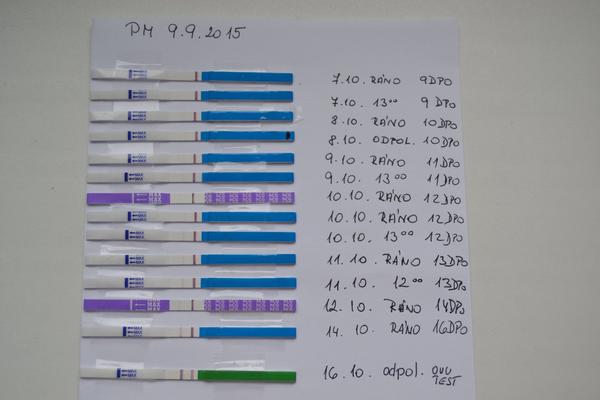 PM 9.9.2015
7.10. RÁNO 9DPO
7.10. 13⁰⁰ 9 DPO
8.10. RÁNO 10DPO
8.10. ODPOL. 10DPO
9.10. RÁNO 11DPO
9.10. 13⁰⁰ 11DPO
10.10. RÁNO 12DPO
10.10. RÁNO 12DPO
10.10. 13⁰⁰ 12DPO
11.10. RÁNO 13DPO
11.10. 12⁰⁰ 13DPO
12.10. RÁNO 14DPO
14.10. RÁNO 16DPO
16.10. odpol. OVU
TEST